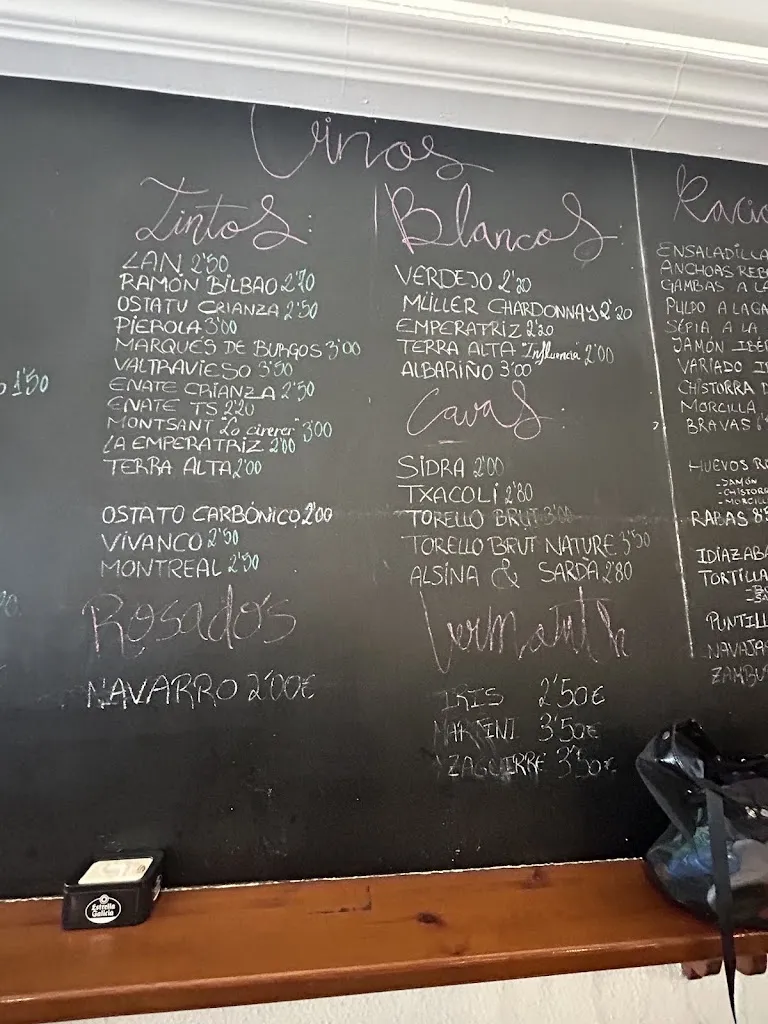 Vinos
Tintos:
LAN 2'50
RAMÓN BILBAO 2'70
OSTATU CRIANZA 2'50
PIEROLA 3'00
MARQUÉS DE BURGOS 3'00
VALTRAVIESO 3'50
ENATE CRIANZA 2'50
ENATE TS 2'20
MONTSANT "Lo cirerer" 3'00
LA EMPERATRIZ 2'00
TERRA ALTA 2'00
OSTATO CARBÓNICO 2'00
VIVANCO 2'50
MONTREAL 2'50
Rosados
NAVARRO 2'00€
Blancos:
VERDEJO 2'20
MÜLLER CHARDONNAY 2'20
EMPERATRIZ 2'20
TERRA ALTA "Influencia" 2'00
ALBARIÑO 3'00
Cavas:
SIDRA 2'00
TXACOLI 2'80
TORELLO BRUT 3'00
TORELLO BRUT NATURE 3'50
ALSINA & SARDA 2'80
Vermouth
IRIS 2'50€
MARTINI 3'50€
YZAGUIRRE 3'50€
Racio
ENSALADILLA
ANCHOAS REB
GAMBAS A LA
PULPO A LA GA
SEPIA A LA
JAMÓN IBÉR
VARIADO IB
CHISTORRA D
MORCILLA
BRAVAS 6'
HUEVOS RO
-JAMÓN
-CHISTORR
-MORCILL
RABAS 8'5
IDIAZABA
TORTILLA
PUNTILL
NAVAJAS
ZAMBU
1'50
Estrella
Galicia